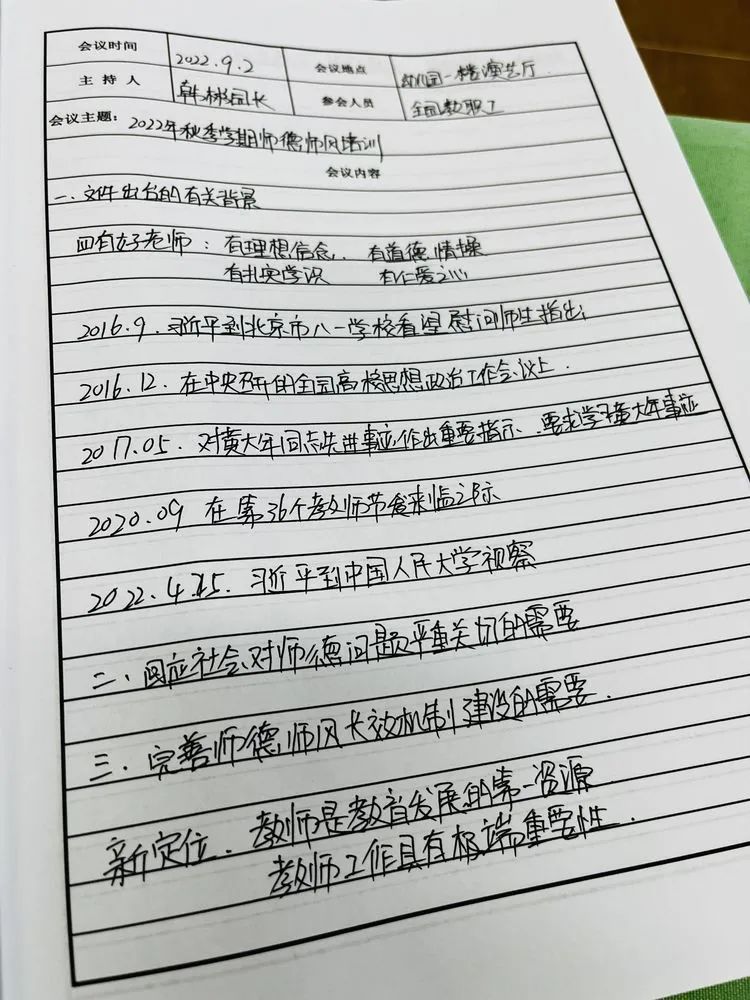 会议时间 2022.9.2 会议地点 幼儿园一楼演艺厅
主持人 韩彬园长 参会人员 全园教职工
会议主题：2022年秋季学期师德师风培训
会议内容
一、文件出台的有关背景
四有好老师：有理想信念、有道德情操
有扎实学识 有仁爱之心
2016.9.习近平到北京市八一学校看望慰问师生指出：
2016.12.在中央召开的全国高校思想政治工作会议上.
2017.05.对黄大年同志先进事迹作出重要指示、要求学习黄大年事迹
2020.09 在第36个教师节食来临之际
2022.4.25.习近平到中国人民大学视察
二、回应社会对师德问题严重关切的需要
三、完善师德师风长效机制建设的需要.
新定位、教师是教育发展的第一资源
教师工作具有极端重要性.